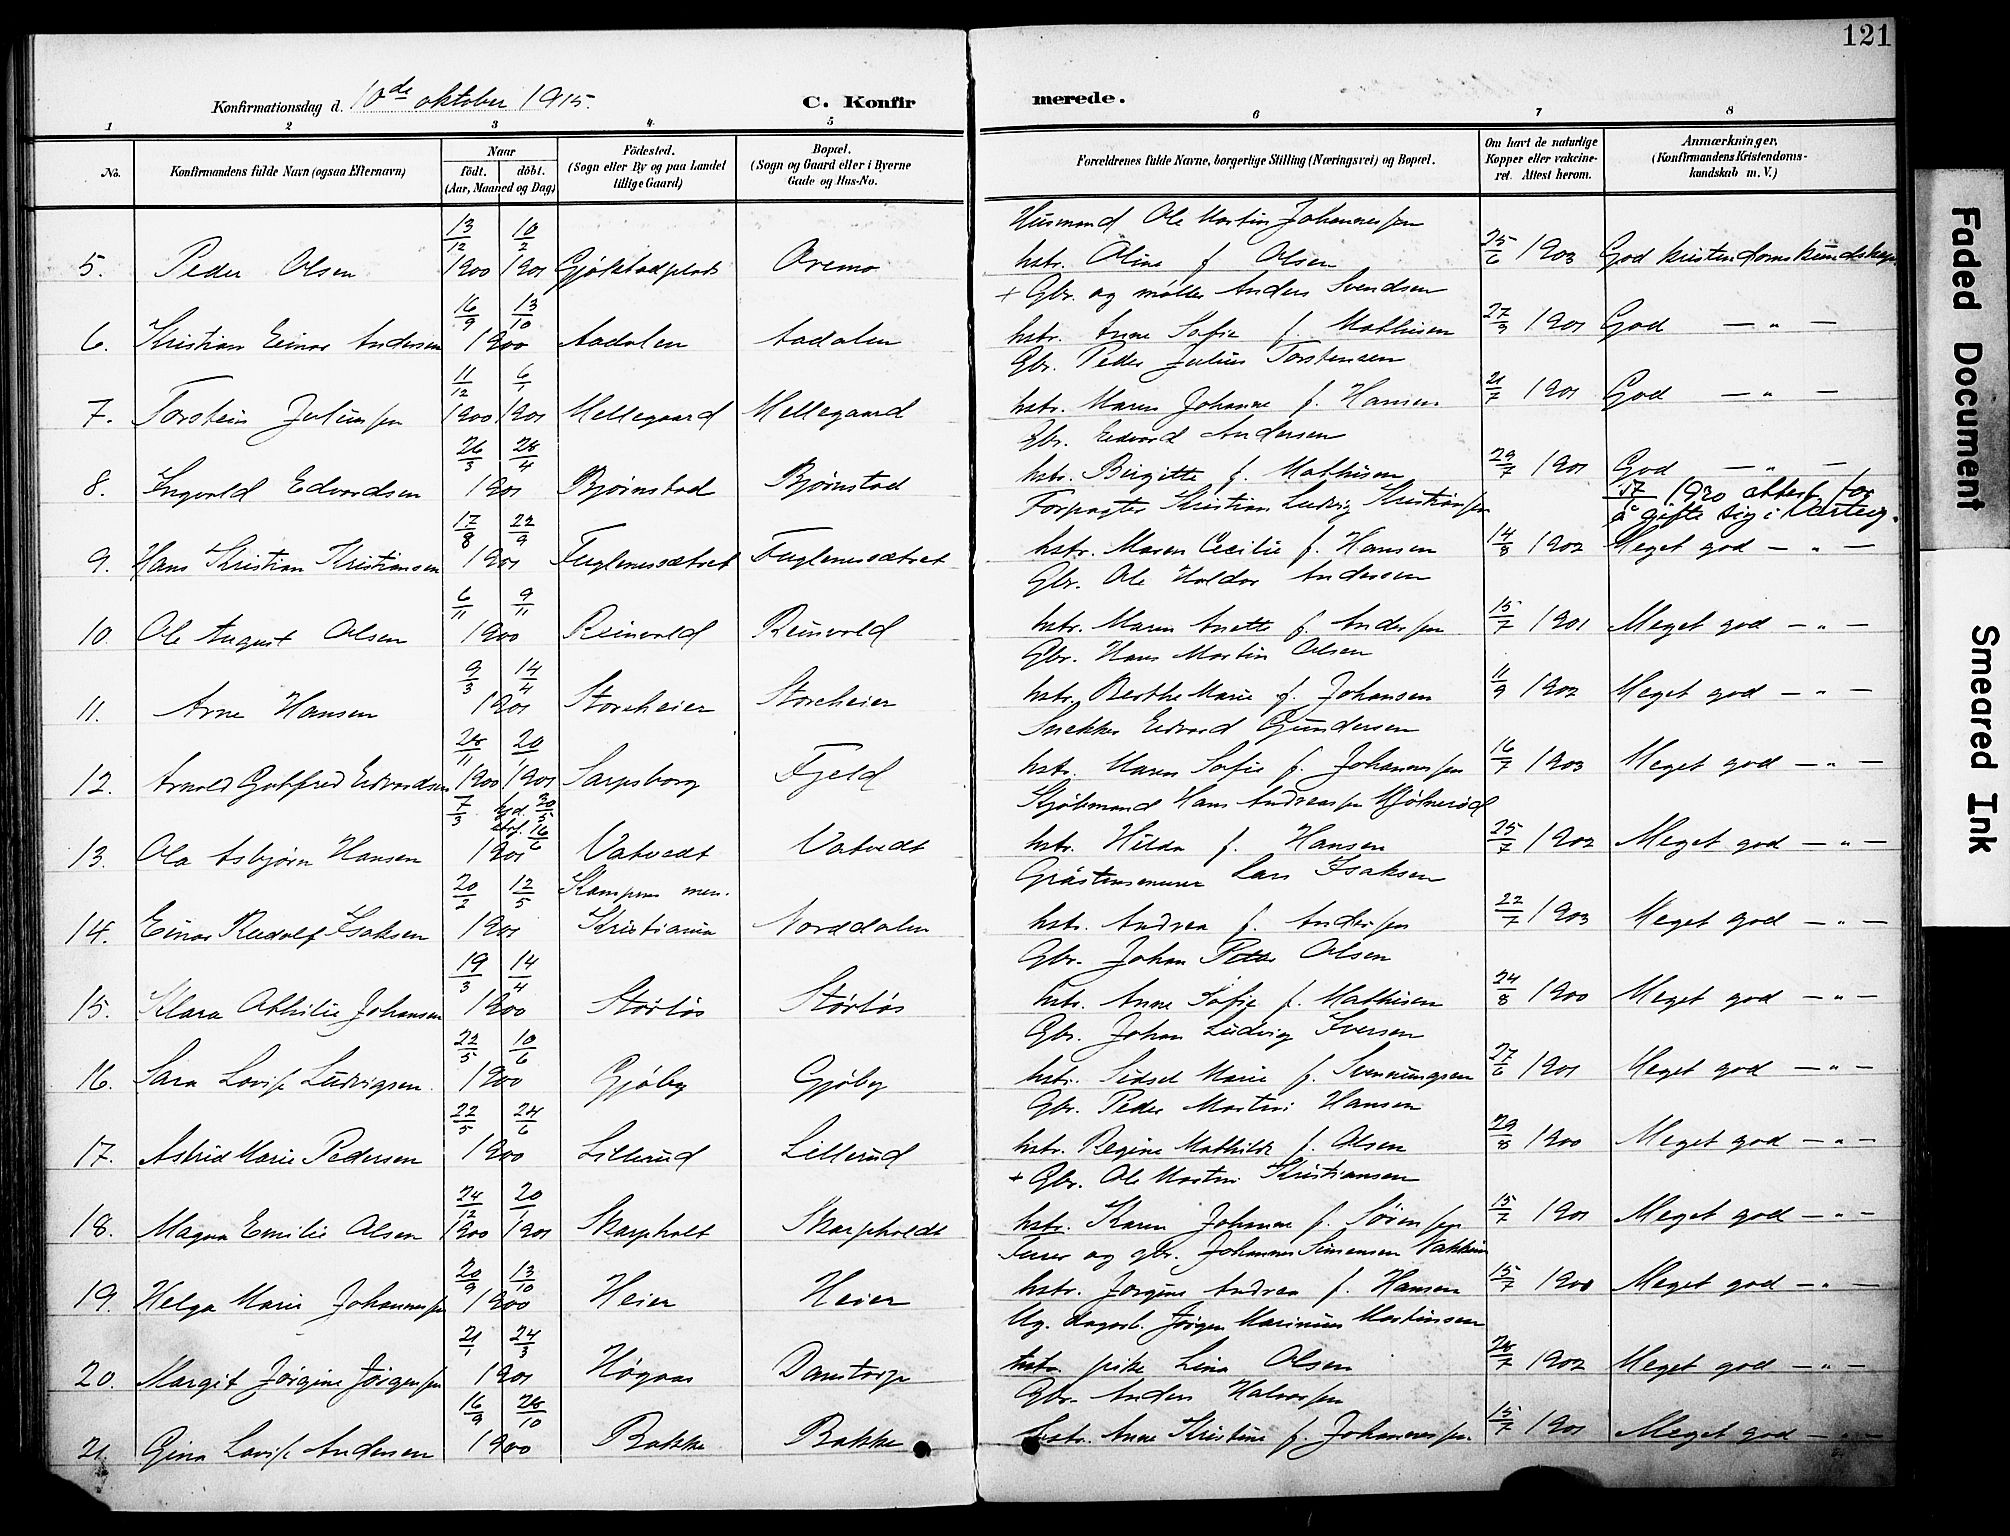 121
Konfirmationsdag d. 10de oktober 1915.
C. Konfirmerede.
1 2 3 4 5 6 7 8
No. Konfirmandens fulde Navn (ogsaa Efternavn) Naar født. døbt. (Aar, Maaned og Dag) Fødested. (Sogn eller By og paa Landet tillige Gaard) Bopæl. (Sogn og Gaard eller i Byerne Gade og Hus-No. Forældrenes fulde Navne, borgerlige Stilling (Næringsvei) og Bopæl. Om havt de naturlige Kopper eller vakcineret. Attest herom. Anmærkninger, (Konfirmandens Kristendomskundskab m. V.)
Husmand Ole Martin Johannessen
5. Peder Olsen 13/12 1900 10/2 1901 Gjøkstadplads Oremo hstr. Oline f. Olsen 25/6 1903 God kristendomskundskap
+ Gbr. og møller Anders Svendsen
6. Kristian Einar Andersen 16/9 13/10 1900 Aadalen Aadalen hstr. Anne Sofie f. Mathisen 27/9 1901 God — " —
Gbr. Peder Julius Torstensen
7. Torstein Juliussen 11/12 1900 6/1 1901 Mellegaard Mellegaard hstr. Maren Johanne f. Hansen 21/7 1901 God — " —
Gbr. Edvard Andersen
8. Ingvald Edvardsen 26/3 28/4 1901 Bjørnstad Bjørnstad hstr. Birgitte f. Mathisen 29/7 1901 God — " —
Forpagter Kristian Ludvig Kristiansen 1930 attest for
å gifte sig i Varteig.
9. Hans Kristian Kristiansen 17/8 22/9 1901 Fuglenessætret Fuglenessætret hstr. Maren Cecilie f. Hansen 14/8 1902 Meget god — " —
Gbr. Ole Haldor Andersen
10. Ole August Olsen 6/11 9/11 1900 Reinvold Reinvold hstr. Maren Anette f. Anderssen 15/7 1901 Meget god — " —
Gbr. Hans Martin Olsen
11. Arne Hansen 9/3 14/4 1901 Storeheier Storeheier hstr. Berthe Marie f. Johansen 11/9 1902 Meget god — " —
Snekker Edvard Gundersen
12. Arnold Gotfred Edvardsen 28/11 1900 20/1 1901 Sarpsborg Fjeld hstr. Maren Sofie f. Johannessen 16/7 1903 Meget god — " —
Kjøbmand Hans Andreassen Kjølnerød
13. Ola Asbjørn Hansen 7/3 hjd. 30/5 stf. 16/6 1901 Vatvedt Vatvedt hstr. Hilda f. Hansen 25/7 1902 Meget god — " —
Gråstensmurer Lars Isaksen
14. Einar Rudolf Isaksen 20/2 12/5 1901 Kampens men. Kristiania Norddalen hstr. Andrea f. Anderssen 22/7 1903 Meget god — " —
Gbr. Johan Peter Olsen
15. Klara Othilie Johansen 19/3 14/4 1900 Størløs Størløs hstr. Anne Sofie f. Mathisen 24/8 1900 Meget god — " —
Gbr. Johan Ludvig Iversen
16. Sara Lovise Ludvigsen. 22/5 10/6 1900 Gjøby Gjøby hstr. Sidsel Marie f. Svenningsen 27/6 1901 Meget god — " —
Gbr. Peder Martin Hansen
17. Astrid Marie Pedersen 22/5 24/6 1900 Lillerud Lillerud hstr. Regine Mathilde f. Olsen 29/8 1900 Meget god — " —
+ Gbr. Ole Martin Kristiansen
18. Magna Emilie Olsen 24/12 1900 20/1 1901 Skarpholt Skarpholdt hstr. Karen Johanne f. Sørenssen 15/7 1901 Meget god — " —
og gbr. Johannes Simensen
19. Helga Marie Johannessen 20/9 13/10 1900 Heier Heier hstr. Jørgine Andrea f. Hansen 15/7 Meget god — " —
Ug. dagarb. Jørgen Marinius Martinsen
20. Margit Jørgine Jørgenssen 21/1 24/3 1901 Høgaas Danstorp pike Lina Olsen 28/7 1902 Meget god — " —
Gbr. Anders Halvorssen
21. Gina Lovise Andersen 16/9 28/10 1900 Bakke Bakke hstr. Anne Kristine f. Johannessen 15/7 1901 Meget god — " —
Faded Document
Smeared Ink